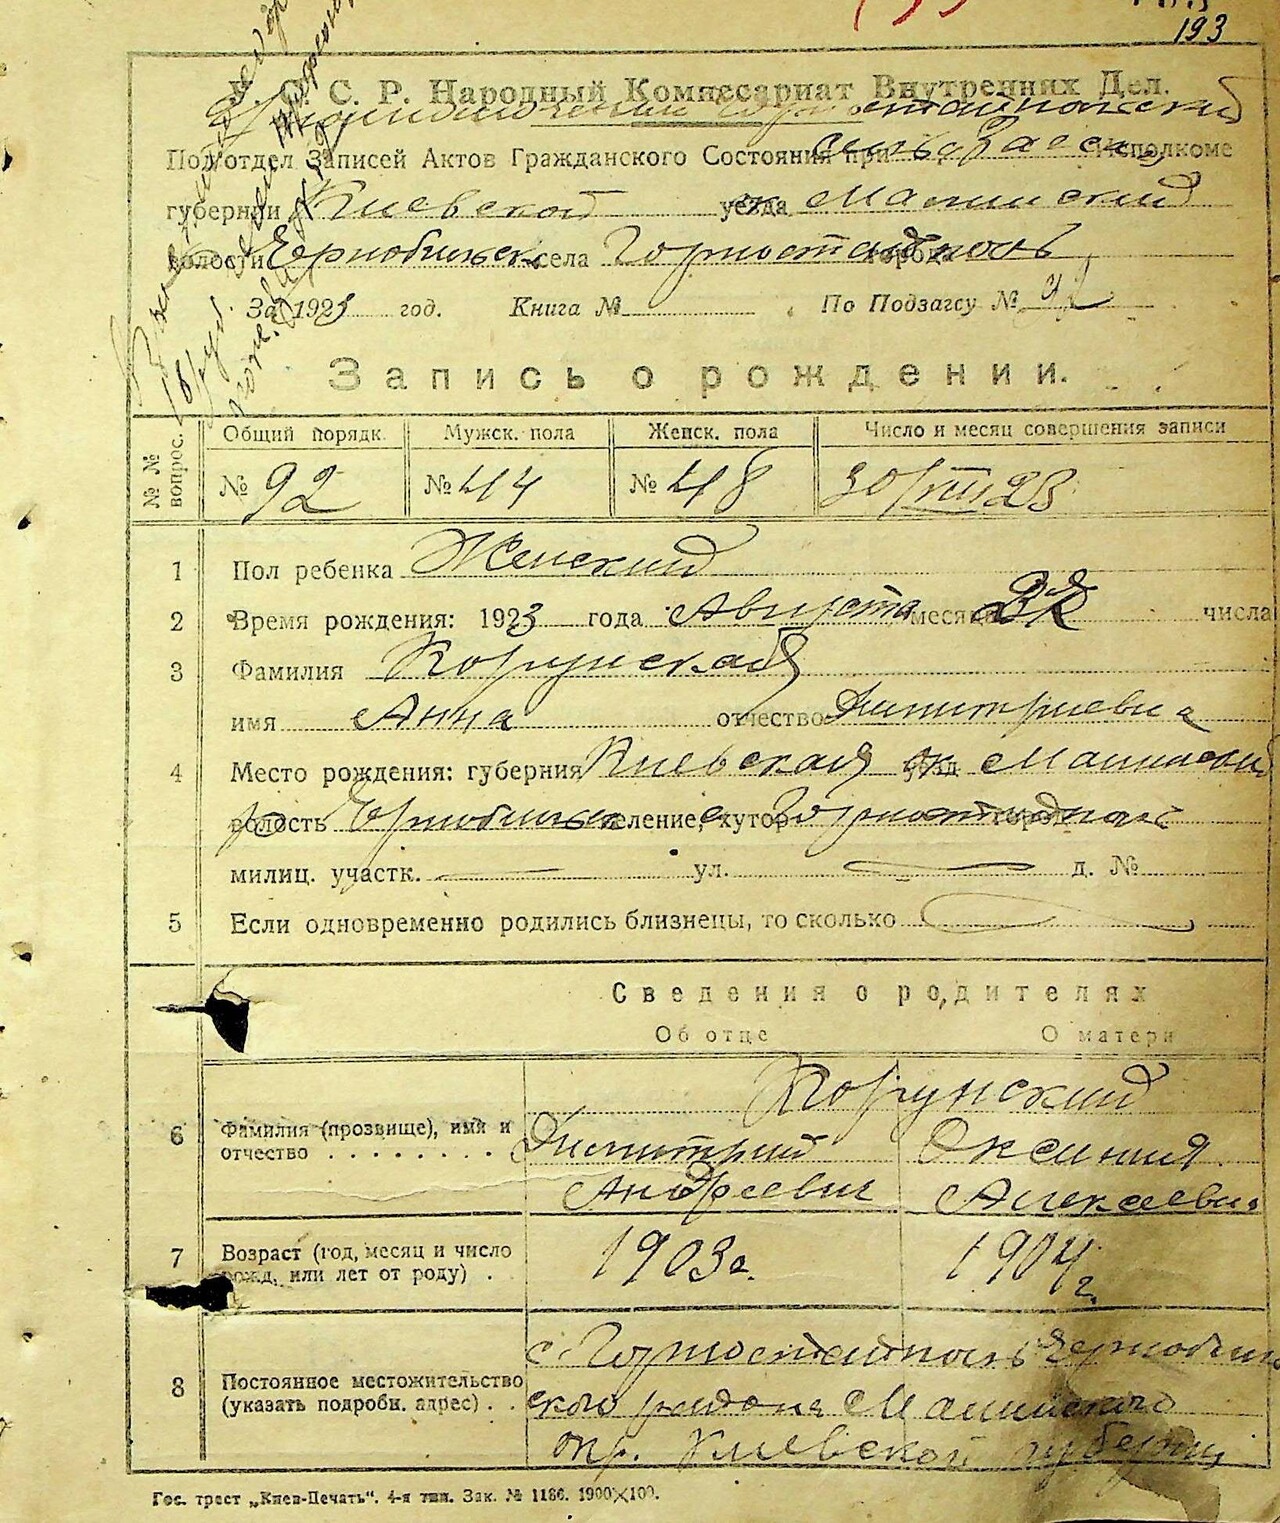 193
У. С. С. Р. Народный Комиссариат Внутренних Дел.
Подотдел Записей Актов Гражданского Состояния при Исполкоме
губернии Киевской уезда ок Малинский
волости Чернобыльск села Горностайполь город
За 1923 год. Книга № По Подзагсу № 92
Запись о рождении.
№ № вопрос. Общий порядк. Мужск. пола Женск. пола Число и месяц совершения записи
№ 92 № 44 № 48 30/VIII 23
1 Пол ребенка Женский
2 Время рождения: 1923 года Августа месяца числа
3 Фамилия Коргунская
имя Анна отчество Димитриевна
4 Место рождения: губерния Киевская ок уезд Малинский
волость Чернобыльск селение, хутор Горностайполь город
милиц. участк. ул. д. №
5 Если одновременно родились близнецы, то сколько
Сведения о родителях
Об отце О матери
Коргунский
6 Фамилия (прозвище), имя и отчество Димитрий Оксиния
Андреевич Алексеевн
7 Возраст (год, месяц и число рожд. или лет от роду) . 1903г. 1904г.
8 Постоянное местожительство (указать подробн. адрес) . . с. Горностайполь Чернобыль
ского района Малинского
окр. Киевской губернии
Гос. трест „Киев-Печать“. 4-я тип. Зак. № 1186. 1900×100.